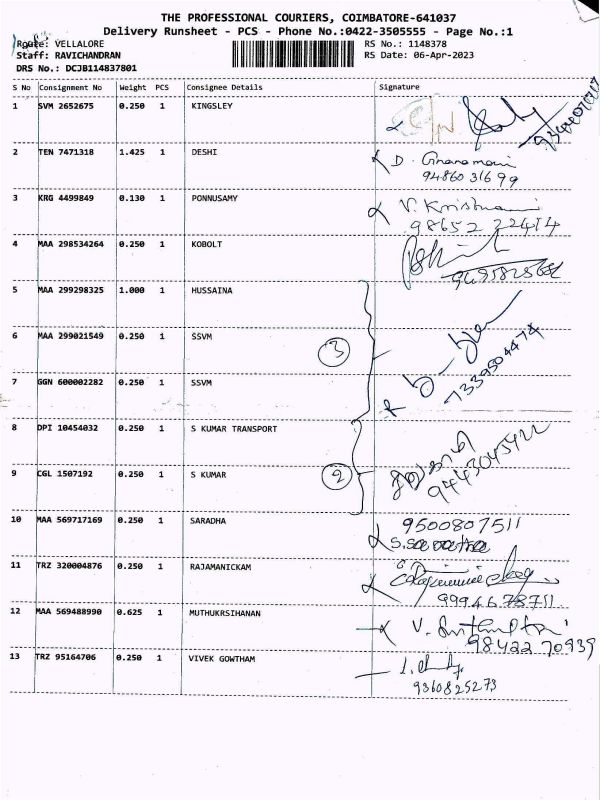 THE PROFESSIONAL COURIERS, COIMBATORE-641037
Delivery Runsheet - PCS - Phone No.:0422-3505555 - Page No.:1
Route: VELLALORE RS No.: 1148378
Staff: RAVICHANDRAN RS Date: 06-Apr-2023
DRS No.: DCJB114837801
S No Consignment No Weight PCS Consignee Details Signature
1 SVM 2652675 0.250 1 KINGSLEY
2 TEN 7471318 1.425 1 DESHI D. Gnanamani
9486031699
3 KRG 4499849 0.130 1 PONNUSAMY V. Krishnami
98652 22414
4 MAA 298534264 0.250 1 KOBOLT
5 MAA 299298325 1.000 1 HUSSAINA
6 MAA 299021549 0.250 1 SSVM 3 7339504474
7 GGN 600002282 0.250 1 SSVM
8 DPI 10454032 0.250 1 S KUMAR TRANSPORT
9443045422
9 CGL 1507192 0.250 1 S KUMAR 2
10 MAA 569717169 0.250 1 SARADHA 9500807511
11 TRZ 320004876 0.250 1 RAJAMANICKAM
9994678711
12 MAA 569488990 0.625 1 MUTHUKRSIHANAN V.
98422 70939
13 TRZ 95164706 0.250 1 VIVEK GOWTHAM
9360825273